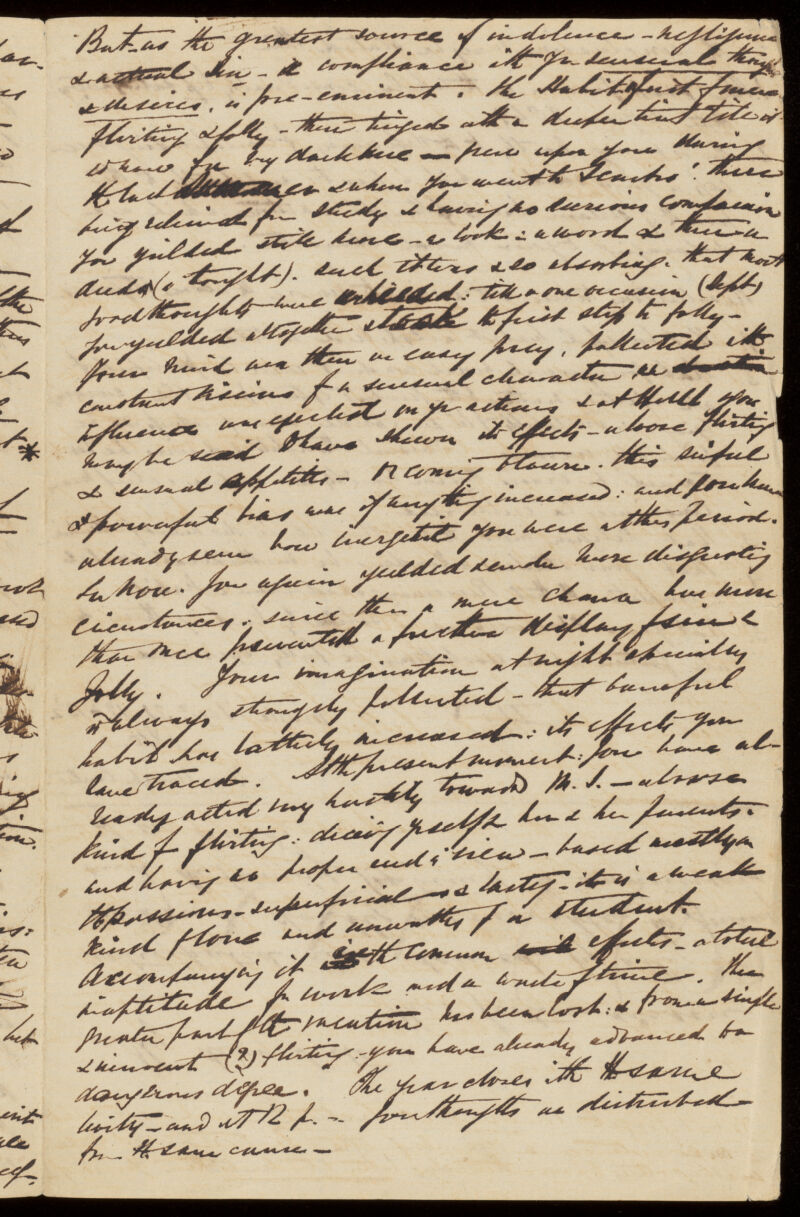 But as the greatest source of indolence - negligence
& actual sin - is compliance ith yr sensual thoughts
& desires, is pre-eminent. The Habit of
flirting & folly - then tinged ith a deeper tint
by darkness - grew upon you during
the last & when you went to : there
being relieved from study & having no serious companion
you yielded still more - a look : a word & then a
deed (a thought). such others & so absorbing. that most
good thoughts were : till on one occasion (Sept)
you yielded altogether to first step to folly -
Your mind was then an easy prey, polluted ith
constant visions of a sensual character
influence unexpected on yr actions & at you
may be said I have shewn its effects - whose flirting
& sensual appetites - On coming to town. this sinful
& powerful bias was if anything increased : and you have
already seen how inergetic you were at this Period.
In Nov. you again yielded under more disgusting
circumstances. since then a mere chance has more
than once prevented a further display of sin &
folly. Your imagination at night especially
is always strongly polluted - that baneful
habit has latterly increased : its effects you
have traced. At the present moment : you have al-
ready acted very hastily towards M. I. - a worse
kind of flirting : deceiving yrself & her & her parents.
and having no proper end in view - based mostly on
the passions - superficial & hasty - it is a weak
kind of love and unworthy of a student.
Accompanying it is the common effects - a total
inaptitude for work and a waste of time. The
greater part of the vacation has been lost : & from a simple
& innocent (?) flirting - you have already advanced to a
dangerous degree. The year closes ith the same
levity - and at 12 p. - your thoughts are disturbed
from the same cause -